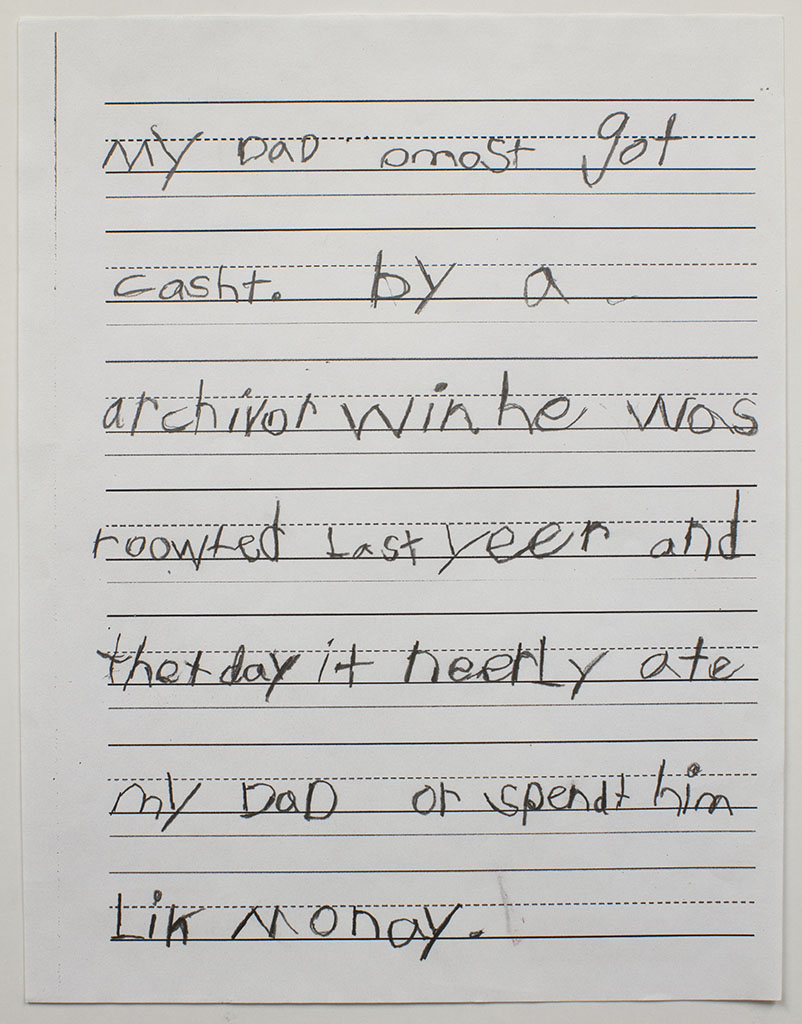 My DaD omost got
casht. by a
archivor win he was
roowted Last yeer and
thet day it neerLy ate
my DaD or spendt him
Lik monay.